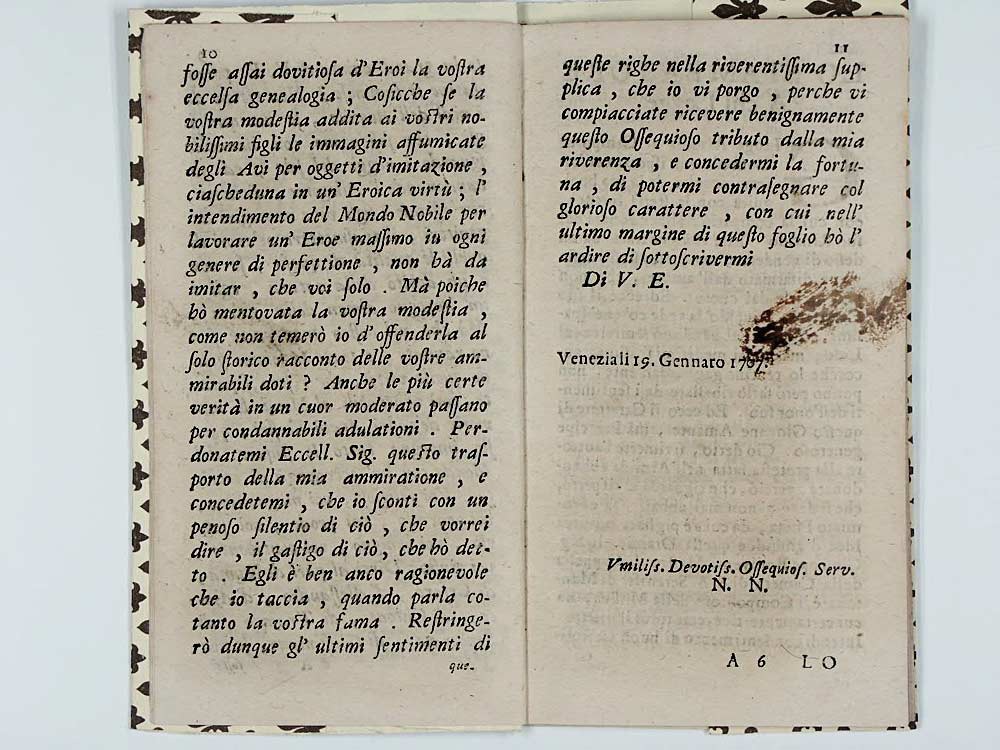 10
foſſe aſſai dovitioſa d'Eroi la voſtra
eccelſa genealogia ; Coſicche ſe la
voſtra modeſtia addita ai voſtri no-
biliſſimi figli le immagini affumicate
degli Avi per oggetti d'imitazione ,
ciaſcheduna in un' Eroica virtù ; l'
intendimento del Mondo Nobile per
lavorare un' Eroe maſſimo iu ogni
genere di perfettione , non hà da
imitar , che voi ſolo . Mà poiche
hò mentovata la voſtra modeſtia ,
come non temerò io d'offenderla al
ſolo ſtorico racconto delle voſtre am-
mirabili doti ? Anche le più certe
verità in un cuor moderato paſſano
per condannabili adulationi . Per-
donatemi Eccell. Sig. queſto traſ-
porto della mia ammiratione , e
concedetemi , che io ſconti con un
penoso ſilentio di ciò , che vorrei
dire , il gaſtigo di ciò, che hò det-
to . Egli è ben anco ragionevole
che io taccia , quando parla co-
tanto la voſtra fama . Reſtringe-
rò dunque gl' ultimi ſentimenti di
que-
11
queſte righe nella riverentiſſima ſup-
plica , che io vi porgo , perche vi
compiacciate ricevere benignamente
queſto Oſſequioſo tributo dalla mia
riverenza , e concedermi la fortu-
na , di potermi contraſegnare col
glorioſo carattere , con cui nell'
ultimo margine di queſto foglio hò l'
ardire di ſottoſcrivermi
Di V. E.
Venezia li 15. Gennaro 1707.
Vmiliſs. Devotiſs. Oſſequioſ. Serv.
N. N.
A 6 LO